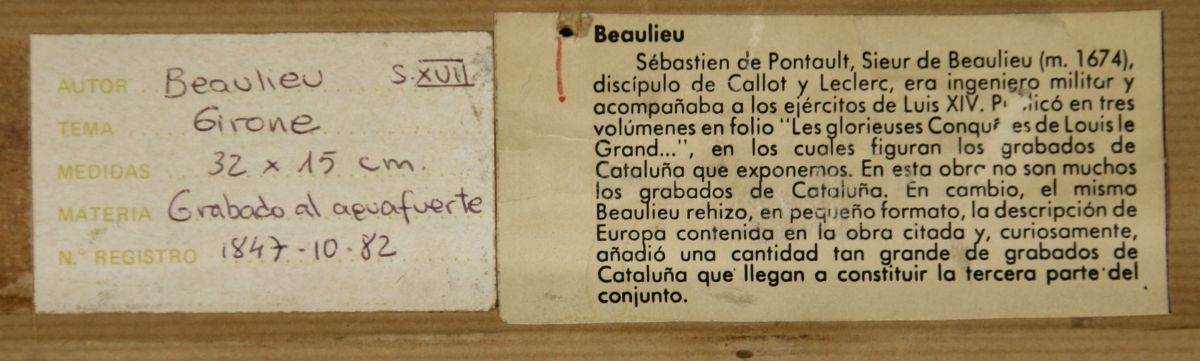 AUTOR Beaulieu S.XVII
TEMA Girone
MEDIDAS 32 x 15 cm.
MATERIA Grabado al aguafuerte
N.° REGISTRO 1847-10-82
Beaulieu
Sébastien de Pontault, Sieur de Beaulieu (m. 1674),
discípulo de Callot y Leclerc, era ingeniero militar y
acompañaba a los ejércitos de Luis XIV. P licó en tres
volúmenes en folio "Les glorieuses Conqu es de Louis le
Grand...", en los cuales figuran los grabados de
Cataluña que exponemos. En esta obra no son muchos
los grabados de Cataluña. En cambio, el mismo
Beaulieu rehizo, en pequeño formato, la descripción de
Europa contenida en la obra citada y, curiosamente,
añadió una cantidad tan grande de grabados de
Cataluña que llegan a constituir la tercera parte del
conjunto.